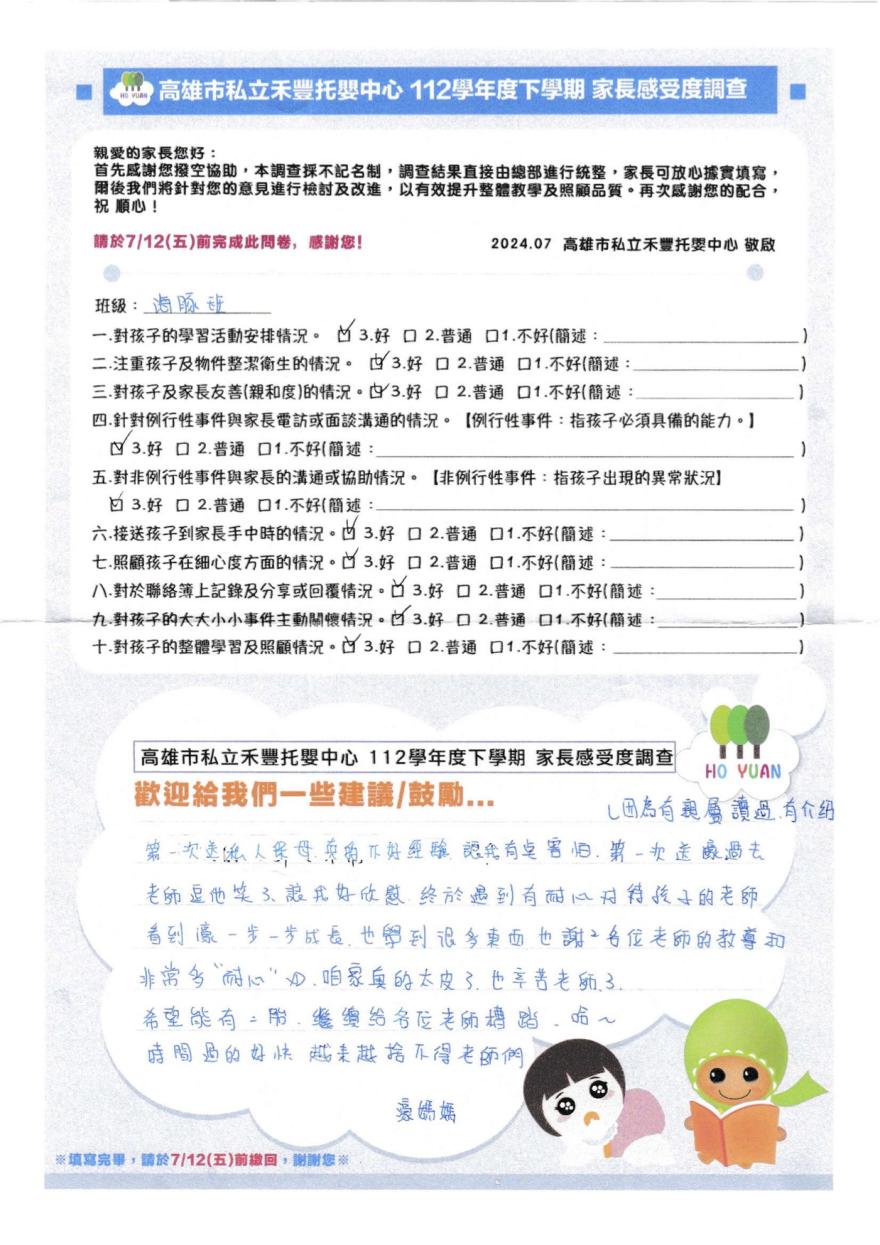 HO YUAN 高雄市私立禾豐托嬰中心 112學年度下學期 家長感受度調查
親愛的家長您好：
首先感謝您撥空協助，本調查採不記名制，調查結果直接由總部進行統整，家長可放心據實填寫，
爾後我們將針對您的意見進行檢討及改進，以有效提升整體教學及照顧品質。再次感謝您的配合，
祝 順心！
請於7/12(五)前完成此問卷，感謝您！ 2024.07 高雄市私立禾豐托嬰中心 敬啟
班級：海豚班
一.對孩子的學習活動安排情況。 ☑ 3.好 □ 2.普通 □1.不好(簡述：＿＿＿)
二.注重孩子及物件整潔衛生的情況。 ☑ 3.好 □ 2.普通 □1.不好(簡述：＿＿＿)
三.對孩子及家長友善(親和度)的情況。☑ 3.好 □ 2.普通 □1.不好(簡述：＿＿＿)
四.針對例行性事件與家長電訪或面談溝通的情況。【例行性事件：指孩子必須具備的能力。】
☑ 3.好 □ 2.普通 □1.不好(簡述：＿＿＿)
五.對非例行性事件與家長的溝通或協助情況。【非例行性事件：指孩子出現的異常狀況】
☑ 3.好 □ 2.普通 □1.不好(簡述：＿＿＿)
六.接送孩子到家長手中時的情況。☑ 3.好 □ 2.普通 □1.不好(簡述：＿＿＿)
七.照顧孩子在細心度方面的情況。☑ 3.好 □ 2.普通 □1.不好(簡述：＿＿＿)
八.對於聯絡簿上記錄及分享或回覆情況。☑ 3.好 □ 2.普通 □1.不好(簡述：＿＿＿)
九.對孩子的大大小小事件主動關懷情況。☑ 3.好 □ 2.普通 □1.不好(簡述：＿＿＿)
十.對孩子的整體學習及照顧情況。☑ 3.好 □ 2.普通 □1.不好(簡述：＿＿＿)
高雄市私立禾豐托嬰中心 112學年度下學期 家長感受度調查
HO YUAN
歡迎給我們一些建議/鼓勵...
因為有親屬讀過,有介紹
第一次送私人保母,真的不好經驗,讓我有點害怕.第一次送濠過去
老師逗他笑了、讓我好欣慰.終於遇到有耐心對待孩子的老師
看到濠一步一步成長.也學到很多東西 也謝謝各位老師的教導和
非常多"耐心".咱家真的太皮了.也辛苦老師了.
希望能有二胎.繼續給各位老師糟蹋.哈~
時間過的好快 越來越捨不得老師們
濠媽媽
※填寫完畢，請於7/12(五)前繳回，謝謝您※